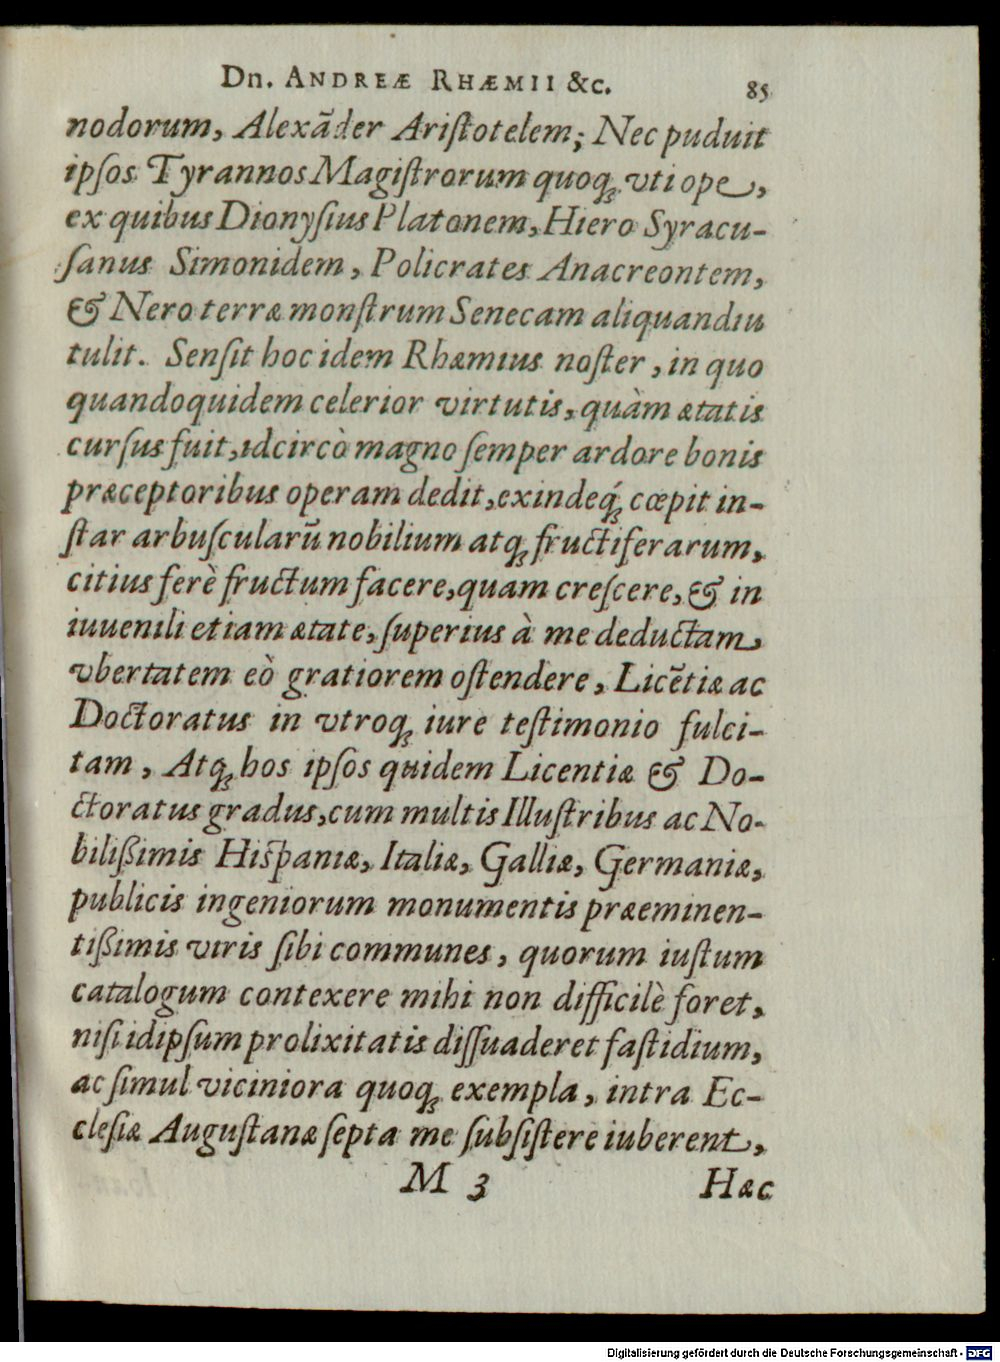 Dn. ANDREÆ RHÆMII &c. 85
nodorum, Alexãder Ariſtotelem; Nec puduit
ipſos Tyrannos Magiſtrorum quoq; vti ope,
ex quibus Dionyſius Platonem, Hiero Syracu-
ſanus Simonidem, Policrates Anacreontem,
& Nero terræ monſtrum Senecam aliquandiu
tulit. Senſit hoc idem Rhæmius noſter, in quo
quandoquidem celerior virtutis, quàm ætatis
curſus fuit, idcircò magno ſemper ardore bonis
præceptoribus operam dedit, exindeq́; cœpit in-
ſtar arbuſcularũ nobilium atq; fructiferarum,
citius ferè fructum facere, quam creſcere, & in
iuuenili etiam ætate, ſuperius à me deductam,
vbertatem eò gratiorem oſtendere, Licẽtiæ ac
Doctoratus in vtroq; iure teſtimonio fulci-
tam, Atq; hos ipſos quidem Licentiæ & Do-
ctoratus gradus, cum multis Illuſtribus ac No-
bilißimis Hiſpaniæ, Italiæ, Galliæ, Germaniæ,
publicis ingeniorum monumentis præeminen-
tißimis viris ſibi communes, quorum iuſtum
catalogum contexere mihi non difficilè foret,
niſi idipſum prolixitatis diſſuaderet faſtidium,
ac ſimul viciniora quoq; exempla, intra Ec-
cleſiæ Auguſtanæ ſepta me ſubſiſtere iuberent,
M 3 Hæc
Digitalisierung gefördert durch die Deutsche Forschungsgemeinschaft - DFG